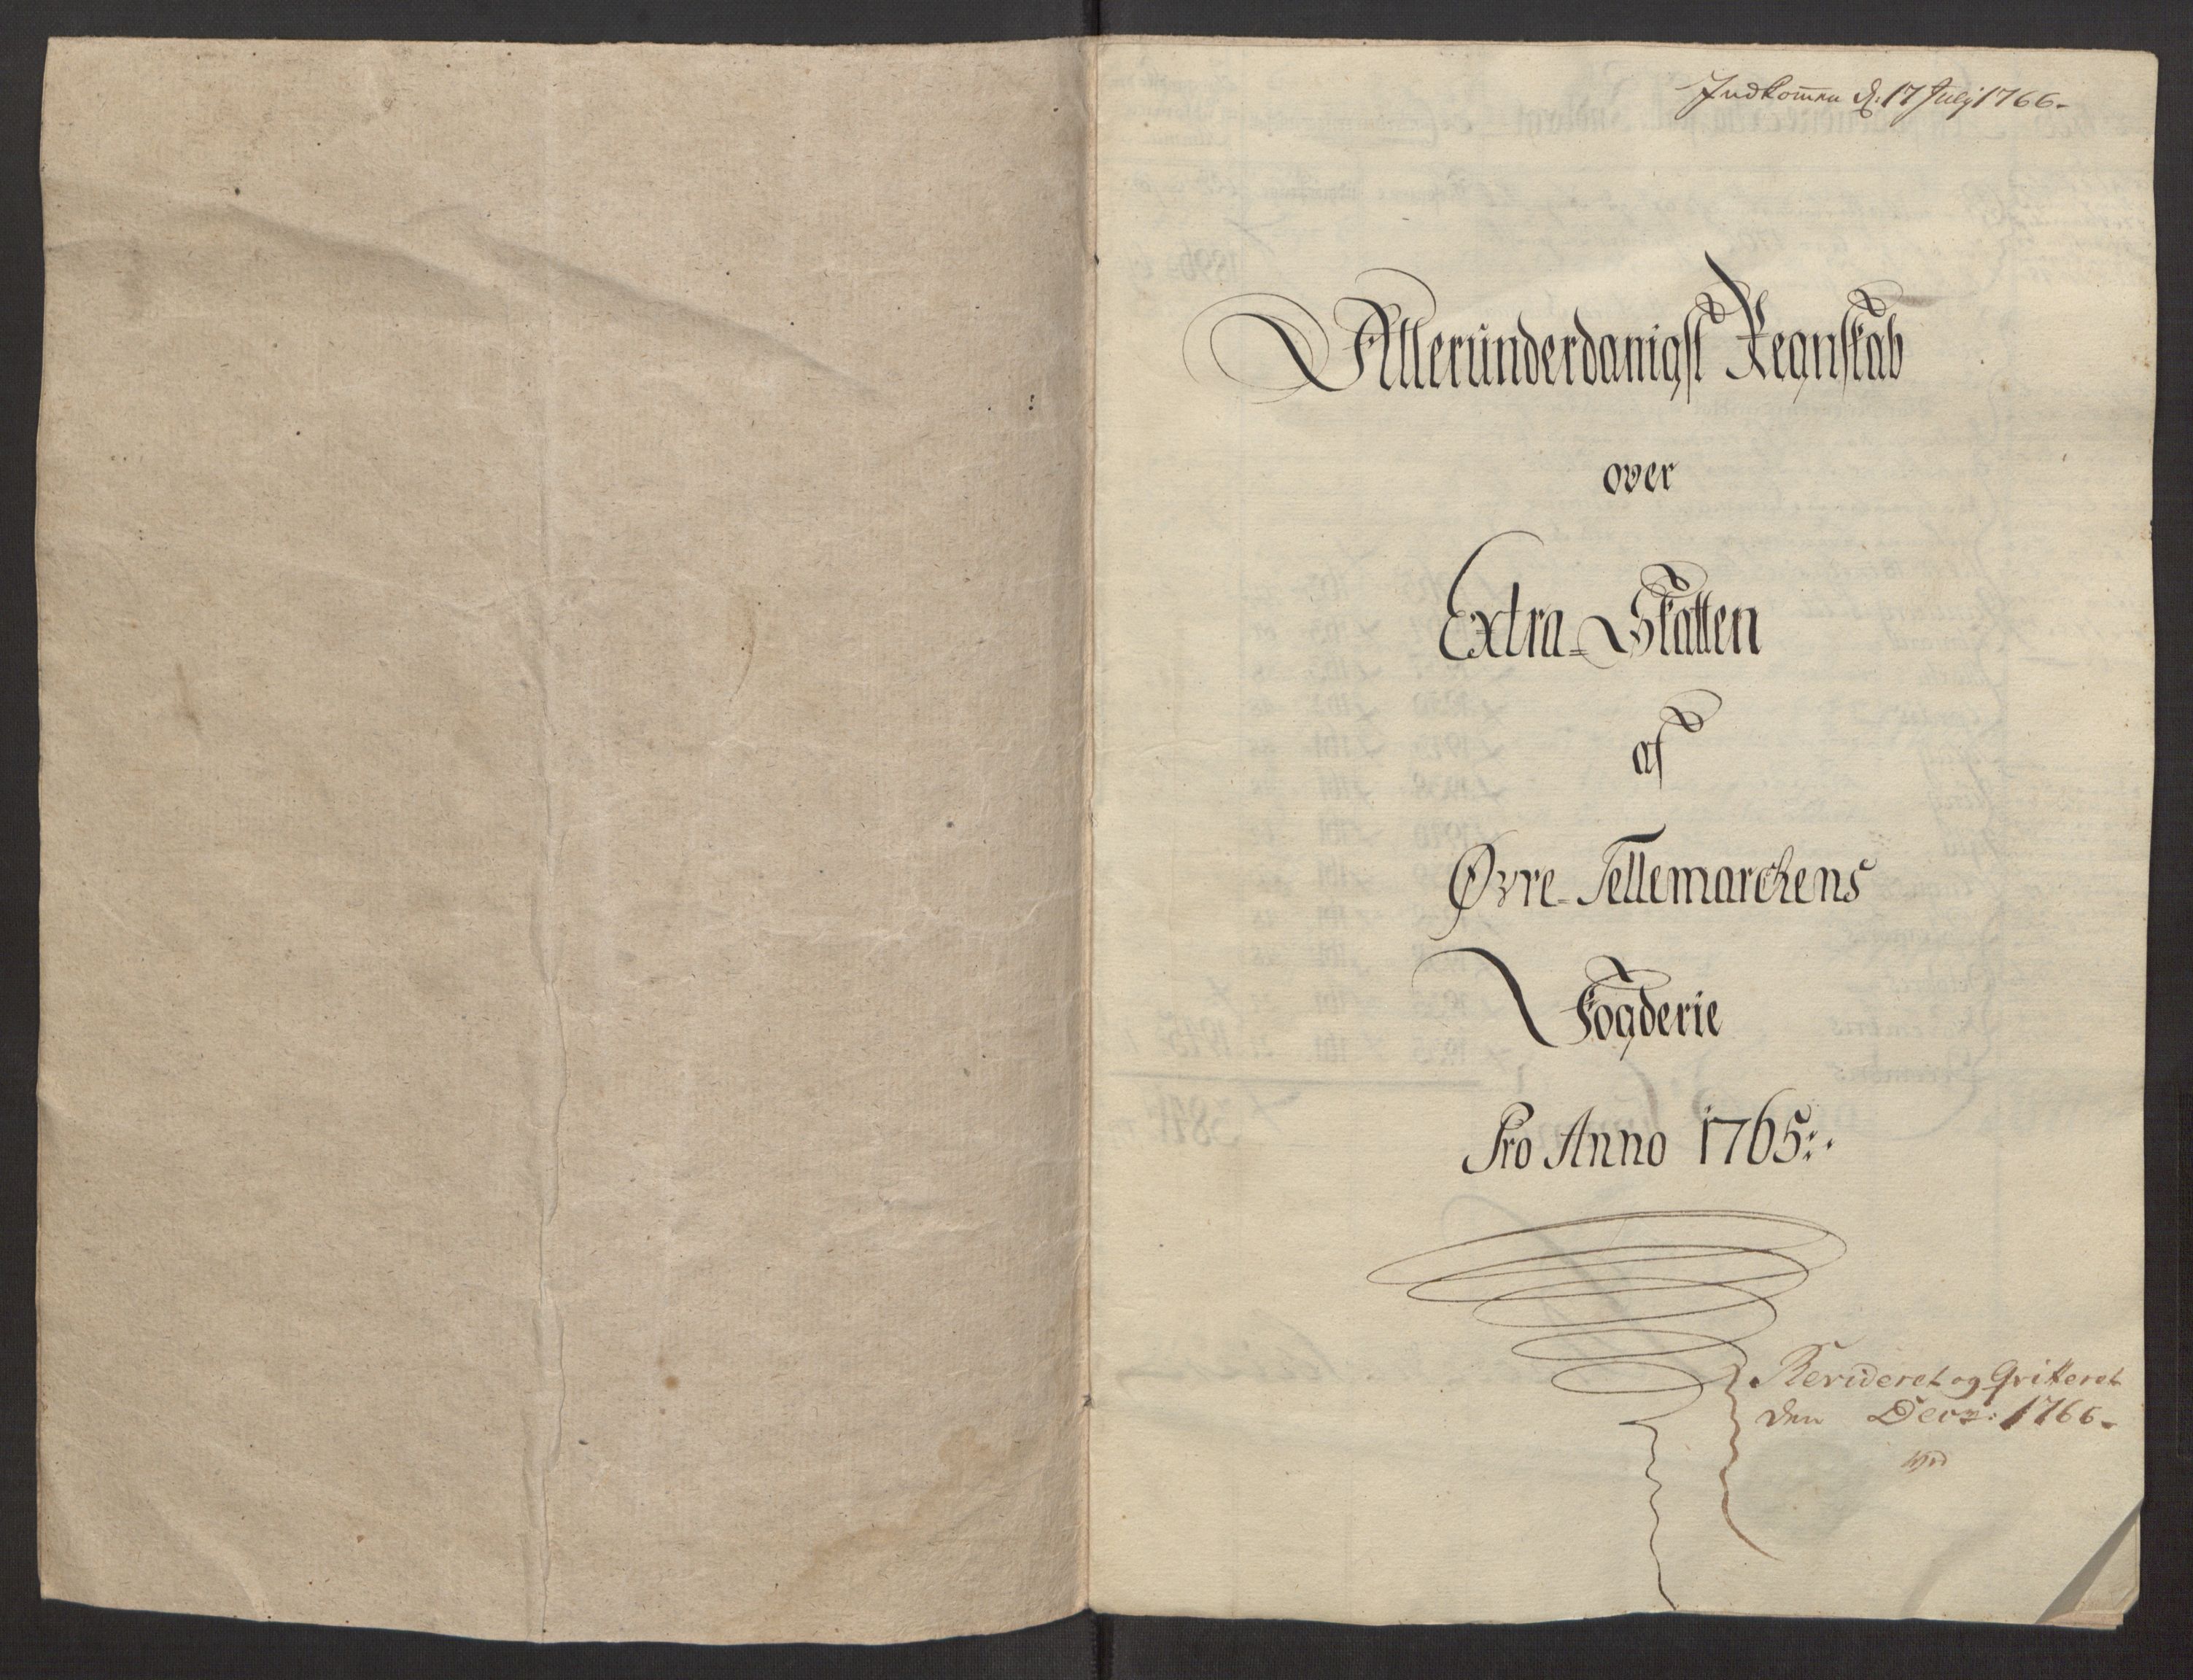 Indkom̄en d: 17 July 1766.
Alleründerdanigst Regnskab
over
Extra-Skatten
af
Øvre-Tellemarchens
Fogderie
Pro Anno 1765:
Revideret og Qvitteret
den Decr: 1766.